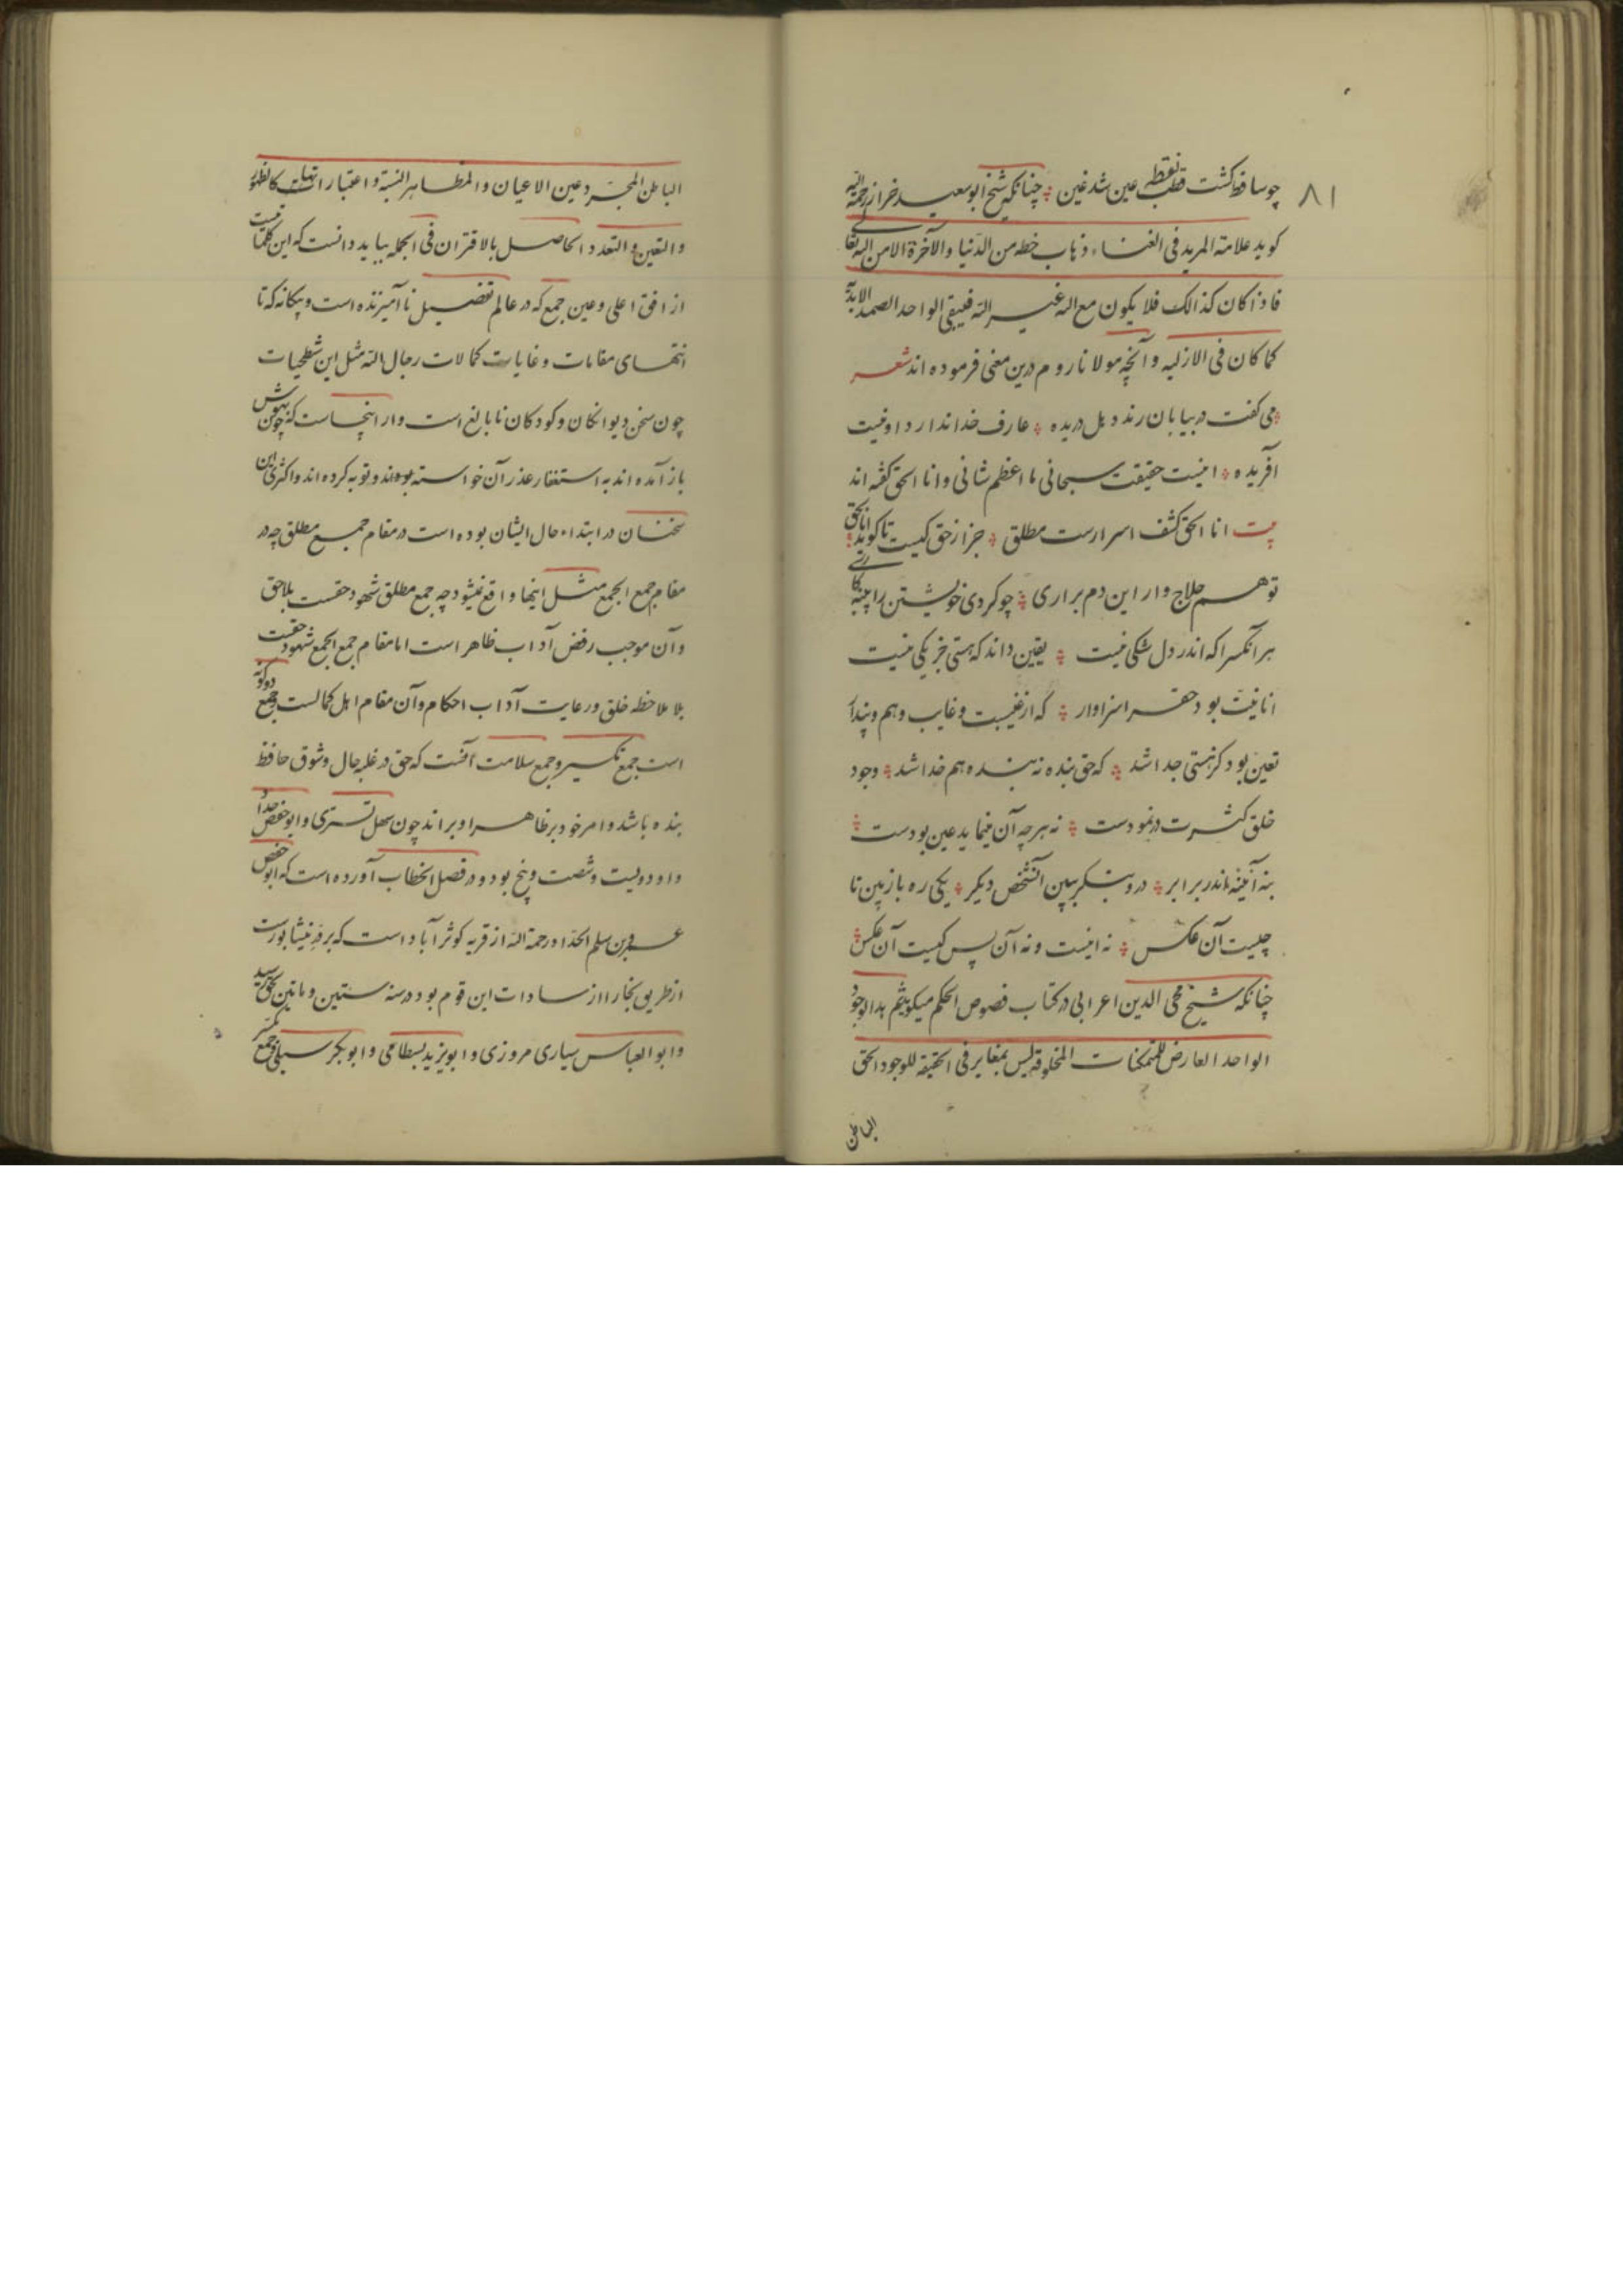 ۸۱
چو ساقط کشت قطب نقطه عین شد غین چنانکه شیخ ابو سعید خراز رحمة الله
کوید علامة المرید فی الفناء ذهاب خطه من الدنیا والآخرة الا من الله تعالی
فاذا کان کذالک فلا یکون مع الله غیر الله فیبقی الواحد الصمد الابدیة
کما کان فی الازلیه و آنچه مولانا روم درین معنی فرموده اند شعر
می کفت در بیابان رند دهل دریده عارف خدا ندارد او نیست
آفریده اینست حقیقت سبحانی ما اعظم شانی و انا الحق کفته اند
بیت انا الحق کشف اسرارست مطلق جز از حق کیست تا کوید انا الحق
تو هم حلاج وار این دم براری چو کردی خویشتن را پنبه کاری
هر آنکس را که اندر دل شکی نیست یقین داند که هستی جز یکی نیست
انانیت بود حق را سزاوار که از غیبست و غایب وهم و پندار
تعین بود کز هستی جدا شد که حق بنده نه بنده هم خدا شد وجود
خلق کثرت در نمودست نه هر چه آن مینماید عین بودست
بنه آئینهٔ اندر برابر درو بنکر ببین آنشخص دیکر یکی ره باز بین تا
چیست آن عکس نه اینست و نه آن پس کیست آن عکس
چنانکه شیخ محی الدین اعرابی در کتاب فصوص الحکم میکوید ثم هذا الوجود
الواحد العارض للممکنات المخلوقة لیس بمغایر فی الحقیقة للوجود الحق
الباطن
الباطن المجرد عین الاعیان والمظاهر النسبة و اعتبارات کالظهور
والتعین والتعدد الحاصل بالاقتران فی الجمله بباید دانست که این کلمات
از افق اعلی و عین جمع که در عالم تفضیل نا آمیزنده است و بیکانه که تا
انتهای مقامات و غایات کمالات رجال الله مثل این شطحیات
چون سخن دیوانکان و کودکان نابالغ است و از اینجاست که چون بهوش
باز آمده اند به استغفار عذر آن خواسته بوده‌اند و توبه کرده اند و اکثری این
سخنان در ابتداء حال ایشان بوده است در مقام جمع مطلق چه در
مقام جمع الجمع مثل اینها واقع نمیشود چه جمع مطلق شهود حقست بلا خلق
و آن موجب رفض آداب ظاهر است اما مقام جمع الجمع شهود حقست
بلا ملاحظه خلق و رعایت آداب احکام و آن مقام اهل کمالست و جمع دو کونه
است جمع تکسیر و جمع سلامت آنست که حق در غلبه حال و شوق حافظ
بنده باشد و امر خود بر ظاهر او براند چون سهل تستری و ابو حفص حداد
و او دویست و شصت و پنج بود و در فصل الخطاب آورده است که ابو حفص
عمرو بن سلم الحداد رحمة الله از قریه کوثر آباد است که بر در نیشابورست
از طریق بخارا از سادات این قوم بود در سنه ستین و ماتین بحق رسید
و ابو العباس سیاری مروزی و ابویزید بسطامی و ابو بکر سبلی و جمع تکسیر